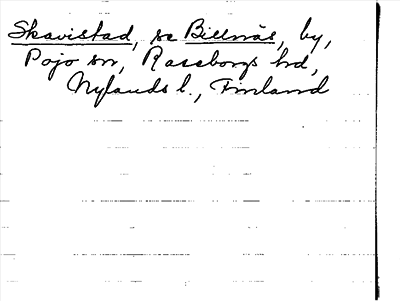 Skavistad, se Billnäs, by,
Pojo sn, Raseborgs hd,
Nylands l., Finland